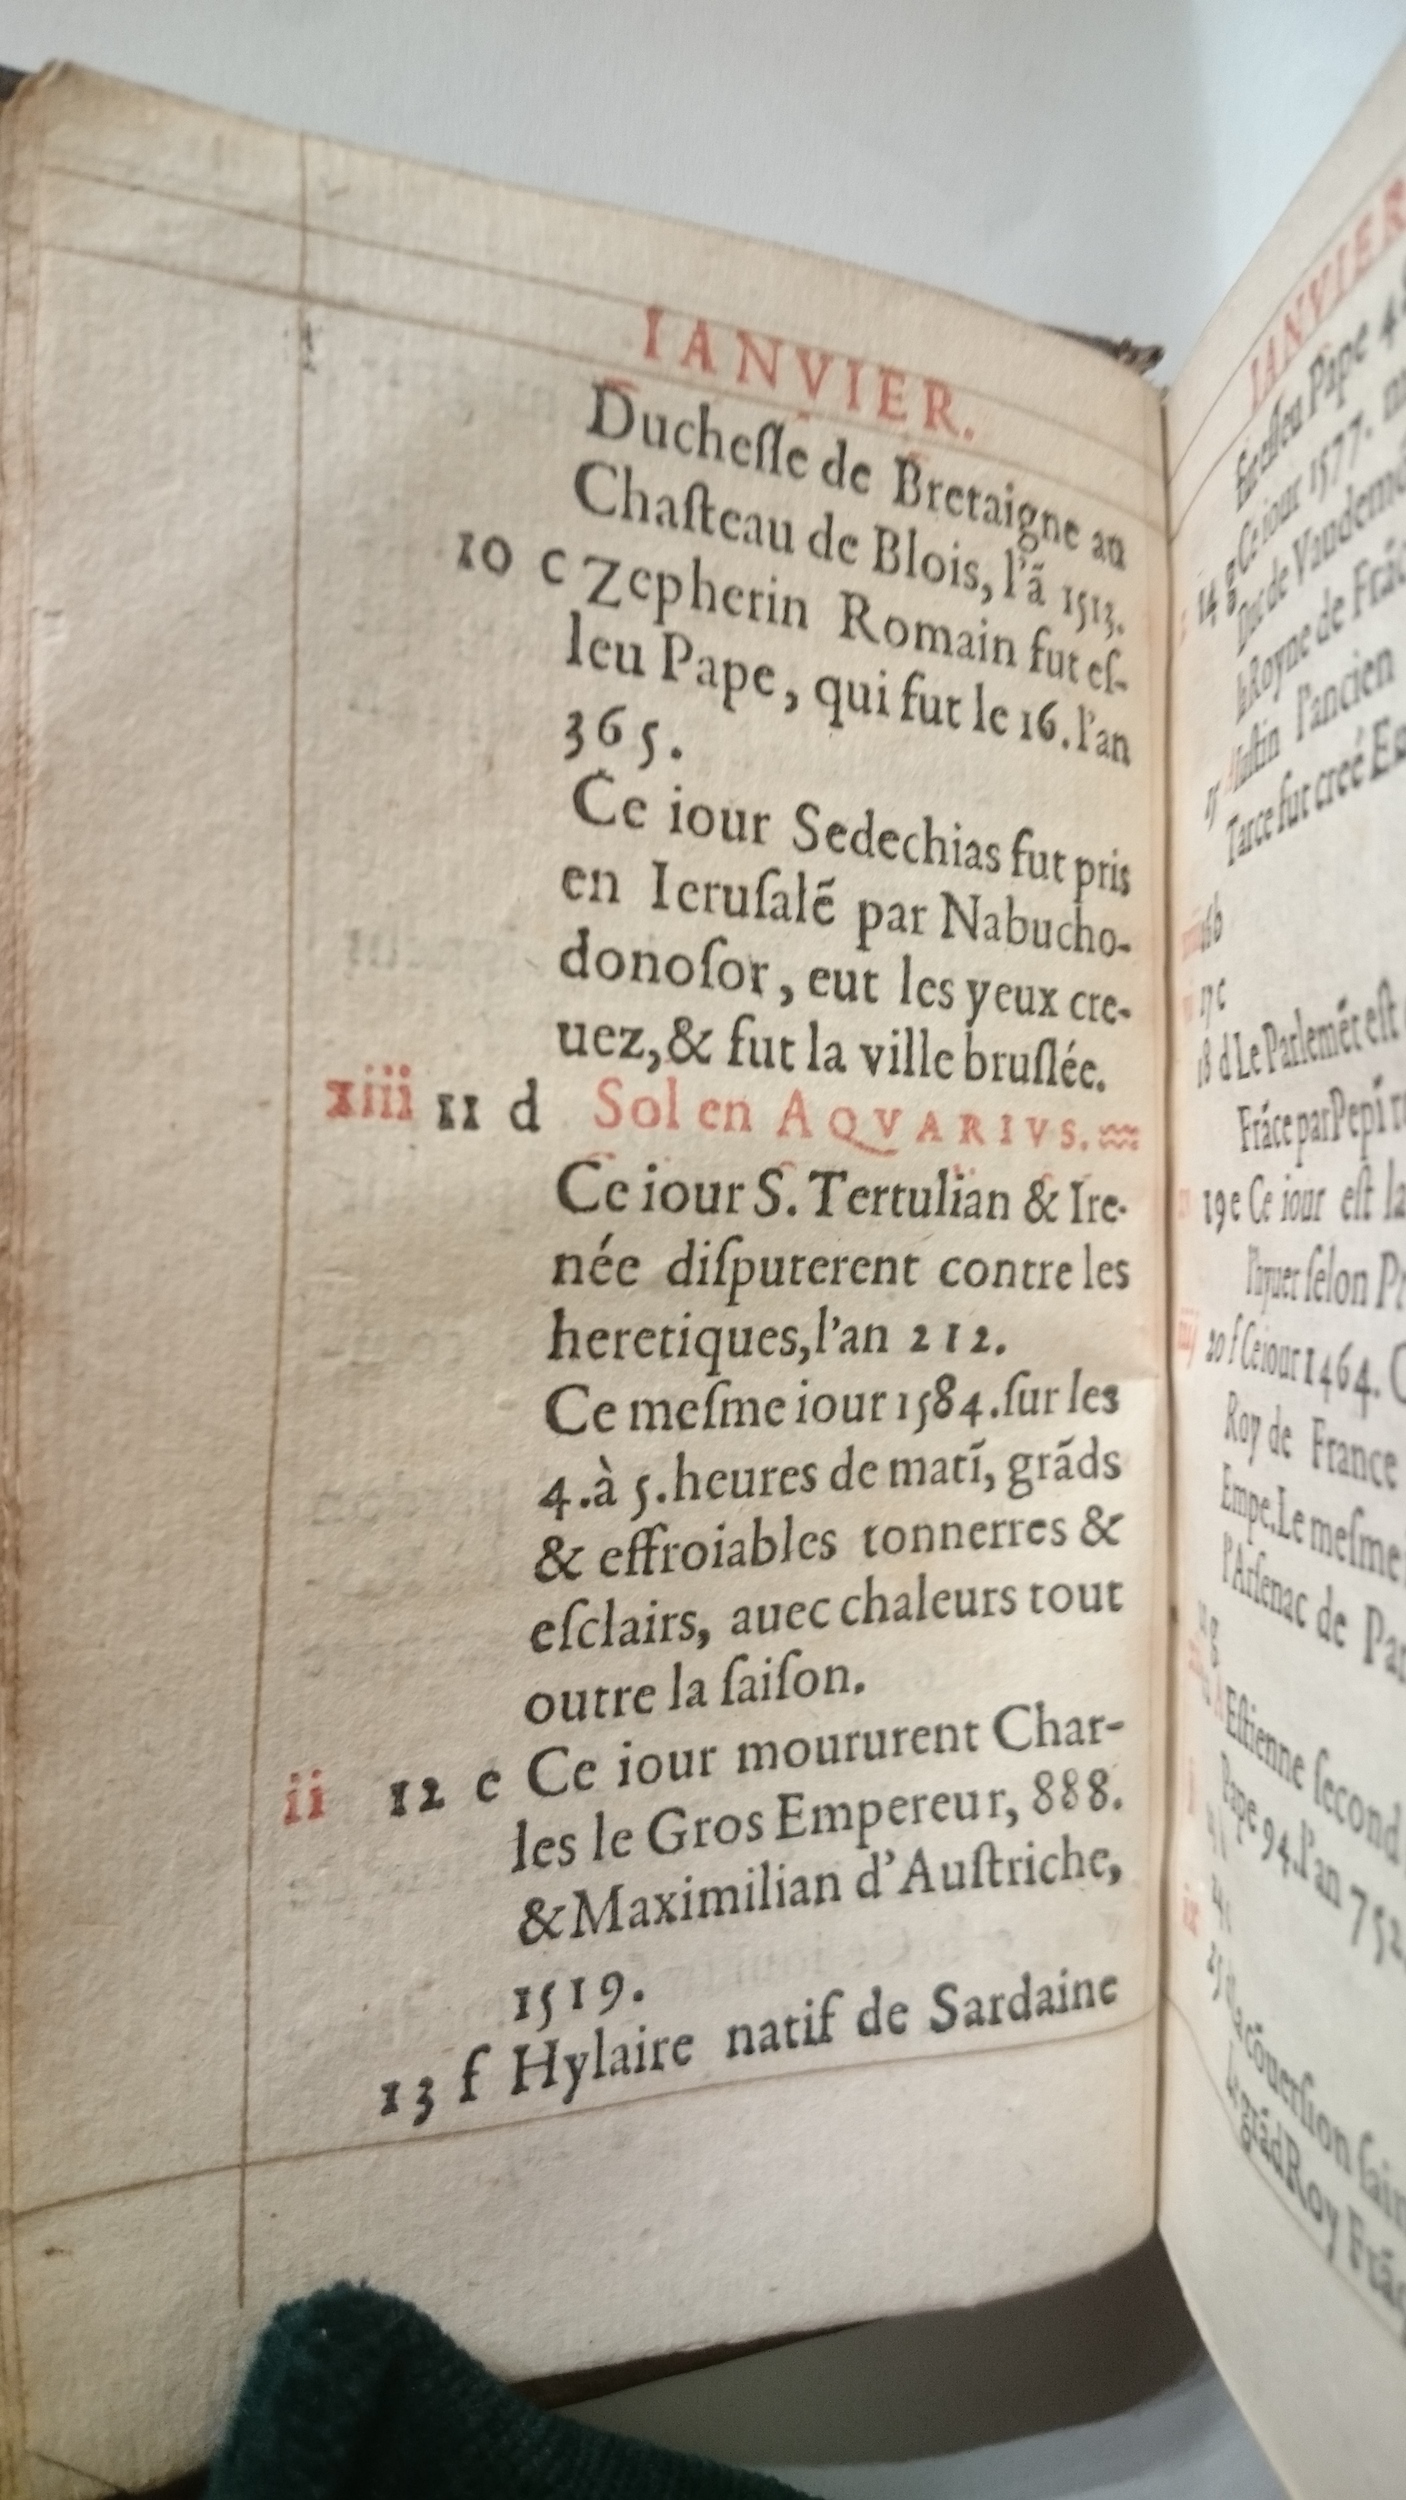 IANVIER.
Ducheſſe de Bretaigne au
Chaſteau de Blois, l'ã 1513.
10 c Zepherin Romain fut eſ-
leu Pape, qui fut le 16. l'an
365.
Ce iour Sedechias fut pris
en Ieruſalẽ par Nabucho-
donoſor, eut les yeux cre-
uez, & fut la ville bruſlée.
xiii 11 d Sol en AQVARIVS. ♒
Ce iour S. Tertulian & Ire-
née diſputerent contre les
heretiques, l'an 212.
Ce meſme iour 1584. ſur les
4. à 5. heures de matĩ, grãds
& effroiables tonnerres &
eſclairs, auec chaleurs tout
outre la ſaiſon.
ii 12 e Ce iour moururent Char-
les le Gros Empereur, 888.
& Maximilian d'Auſtriche,
1519.
13 f Hylaire natif de Sardaine
IANVIER
fut eſleu Pape
14 g Ce iour 1577.
Duc de Vandemo
la Royne de Frãc
15 Iuſtin l'ancien
Tarce fut creé
16 b
17 c
18 d Le Parlemẽt eſt
Frãce par Pepĩ
19 e Ce iour eſt la
l'hyuer ſelon
20 f Ce iour 1464. C
Roy de France
Empe. Le meſme
l'Arſenac de Par
g
Eſtienne ſecond
Pape 94. l'an 752
La cõuerſion ſain
grãd Roy Frãç